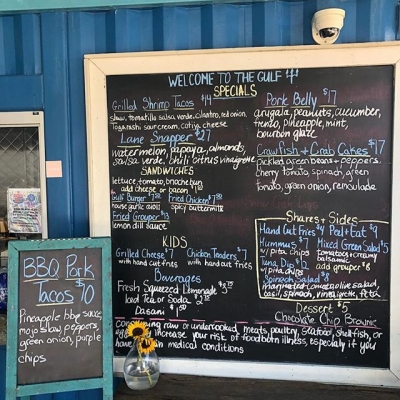 WELCOME TO THE GULF!
SPECIALS
Grilled Shrimp Tacos $14
slaw, tomatillo salsa verde, cilantro, red onion,
Togarashi sour cream, cotija cheese
Lane Snapper $27
watermelon, papaya, almonds,
salsa verde, chili citrus vinaigrette
SANDWICHES
lettuce, tomato, brioche bun
add cheese or bacon
Gulf Burger
house garlic aioli
Fried Chicken
spicy buttermilk
Fried Grouper
lemon dill sauce
KIDS
Grilled Cheese $7
with hand cut fries
Chicken Tenders $7
with hand cut fries
Beverages
Fresh Squeezed Lemonade
Iced Tea or Soda
Dasani
Pork Belly $17
arugala, peanuts, cucumber,
fresno, pineapple, mint,
bourbon glaze
Crawfish + Crab Cakes $17
pickled green beans + peppers,
cherry tomato, spinach, green
tomato, green onion, remoulade
Shares + Sides
Hand Cut Fries $4
Peel + Eat $9
Hummus $7
w/ pita chips
Mixed Green Salad $5
tomatoes, creamy
balsamic
add grouper $8
Tuna Dip
w/ pita chips
Spinach Salad $8
marinated tomato, olive salad
basil, spinach, vinaigrette, feta
Dessert $5
Chocolate Chip Brownie
consuming raw or undercooked, meats, poultry, seafood, shellfish, or
increase your risk of foodborn illness, especially if you
medical conditions
BBQ Pork
Tacos $10
Pineapple bbq sauce,
mojo slaw, peppers,
green onion, purple
chips